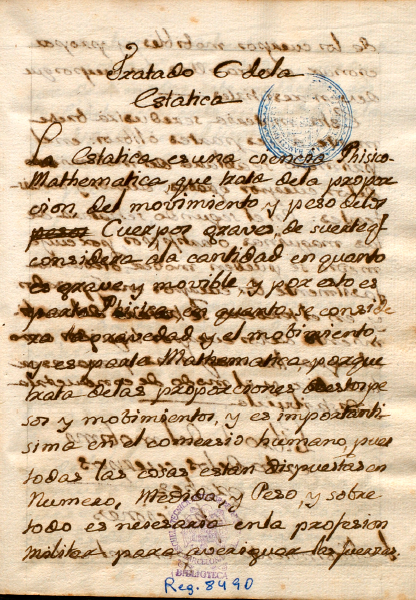 Tratado 6 de la
Estatica
La Estatica es una ciencia Phisico
Mathematica, que trata de la propor
cion, del movimiento, y peso de los
Cuerpos graves, de suerte q
considera a la cantidad en quanto
es grave, y movible, y por esto es
parte Phisica en quanto se conside
ra la gravedad y el mobimiento,
y es parte Mathematica, porque
trata de las proporciones de estos pe
sos y mobimientos, y es importanti
sima en el comersio humano, pues
todas las cosas estan dispuestas en
Numero, Medida, y Peso, y sobre
todo es nesesaria en la profesion
militar para averiguar las fuerzas
BIBLIOTECA
Reg. 8490